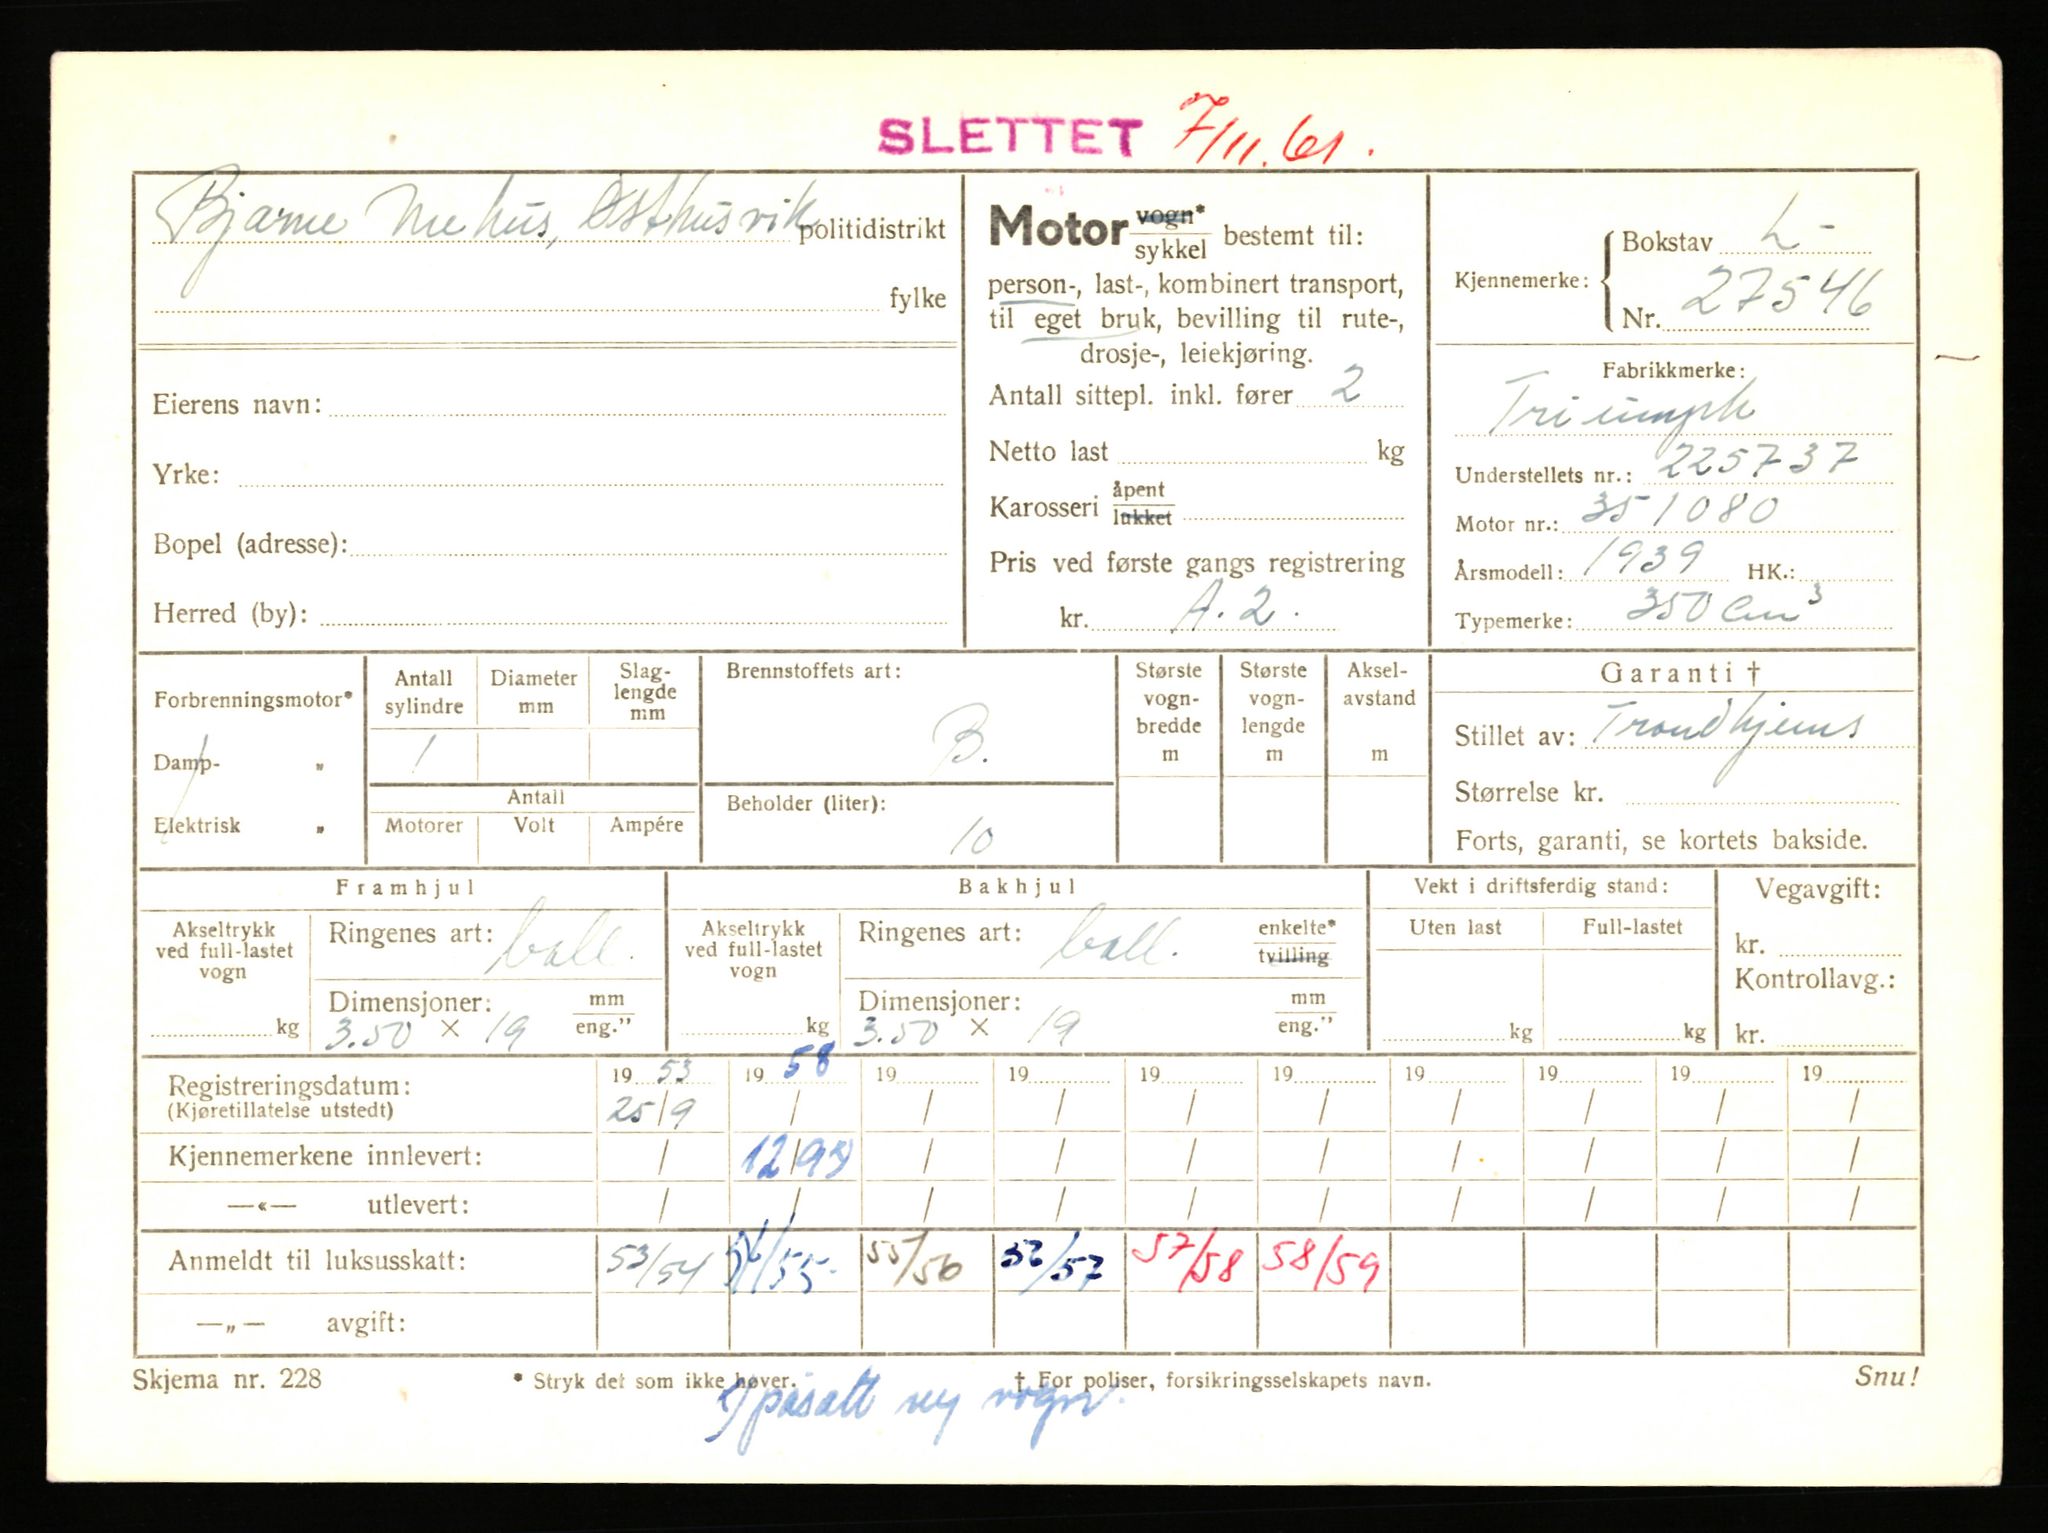 SLETTET 7/11.61.
Bjarne Mehus, Østhusvik politidistrikt
fylke
Eierens navn:
Yrke:
Bopel (adresse):
Herred (by):
Motor vogn*
sykkel bestemt til:
person-, last-, kombinert transport,
til eget bruk, bevilling til rute-,
drosje-, leiekjøring.
Antall sittepl. inkl. fører 2
Netto last kg
Karosseri åpent
lukket
Pris ved første gangs registrering
kr. A.2.
Kjennemerke: Bokstav L-
Nr. 27546
Fabrikkmerke:
Triumph
Understellets nr.: 225737
Motor nr.: 351080
Årsmodell: 1939 HK.:
Typemerke: 350 cm³
Forbrenningsmotor*
Damp- „
Elektrisk „
Antall sylindre
Diameter mm
Slag-lengde mm
1
Antall
Motorer Volt Ampére
Brennstoffets art:
B.
Beholder (liter):
10
Største vogn-bredde m
Største vogn-lengde m
Aksel-avstand m
Garanti †
Stillet av: Trondhjems
Størrelse kr.
Forts, garanti, se kortets bakside.
Framhjul
Akseltrykk ved full-lastet vogn
kg
Ringenes art: ball.
Dimensjoner: mm
3.50 × 19 eng."
Bakhjul
Akseltrykk ved full-lastet vogn
kg
Ringenes art: ball. enkelte*
tvilling
Dimensjoner: mm
3.50 × 19 eng."
Vekt i driftsferdig stand:
Uten last Full-lastet
kg kg
Vegavgift:
kr.
Kontrollavg.:
kr.
Registreringsdatum: 19 53 19 58 19 19 19 19 19 19 19 19
(Kjøretillatelse utstedt) 25/9 / / / / / / / / /
Kjennemerkene innlevert: / 12/9 / / / / / / / /
—«— utlevert: / / / / / / / / / /
Anmeldt til luksusskatt: 53/54 54/55 55/56 56/57 57/58 58/59
—„— avgift:
Skjema nr. 228 * Stryk det som ikke høver. † For poliser, forsikringsselskapets navn. Snu!
påsatt ny vogn.